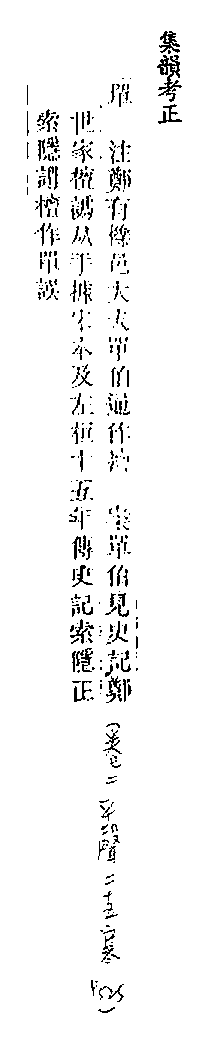 集韻考正
注鄭有櫟邑大夫單伯通作檀 案單伯見史記鄭
世家檀譌从手據宋本及左桓十五年傳史記索隱正
索隱謂檀作單誤
(卷二平聲二 寒